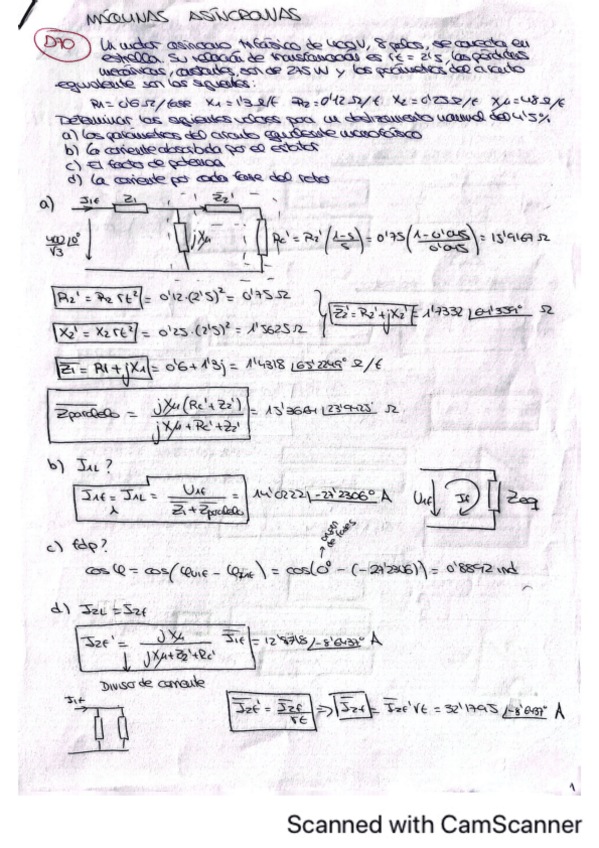 MÁQUINAS ASÍNCRONAS
D90 Un motor asíncrono trifásico de 400V, 8 polos, se conecta en
estrella. Su relación de transformación es rt = 2'5, las pérdidas
mecánicas, constantes, son de 275 W y los parámetros del circuito
equivalente son los siguientes:
R1=0'6 Ω/fase X1=1'3 Ω/f R2=0'12 Ω/f X2=0'25 Ω/f Xμ=48 Ω/f
Determinar los siguientes valores para un deslizamiento nominal del 4'5%
a) Los parámetros del circuito equivalente monofásico
b) La corriente absorbida por el estator
c) El factor de potencia
d) La corriente por cada fase del rotor
a) I1f Z1 Z2'
400∠0° / √3 jXμ Rc' = R2' (1-s / s) = 0'75 (1-0'045 / 0'045) = 15'9167 Ω
R2' = R2 rt² = 0'12·(2'5)² = 0'75 Ω
Z2' = R2' + jX2' = 1'7332 ∠64'359° Ω
X2' = X2 rt² = 0'25·(2'5)² = 1'5625 Ω
Z1 = R1 + jX1 = 0'6 + 1'3j = 1'4318 ∠65'2249° Ω/f
Zparalelo = jXμ (Rc' + Z2') / jXμ + Rc' + Z2' = 15'3664 ∠23'9423° Ω
b) I1L?
I1f = I1L = U1f / Z1 + Zparalelo = 14'0222 ∠-27'2306° A
U1f If Zeq
origen de fases
c) fdp?
cos φ = cos(φU1f - φI1f) = cos(0° - (-27'2306)) = 0'8892 ind
d) I2L = I2f
I2f' = jXμ / jXμ + Z2' + Rc' I1f = 12'8718 ∠-8'6437° A
Divisor de corriente
I1f
I2f' = I2f / rt ⇒ I2f = I2f' rt = 32'1795 ∠-8'6437° A
1
Scanned with CamScanner